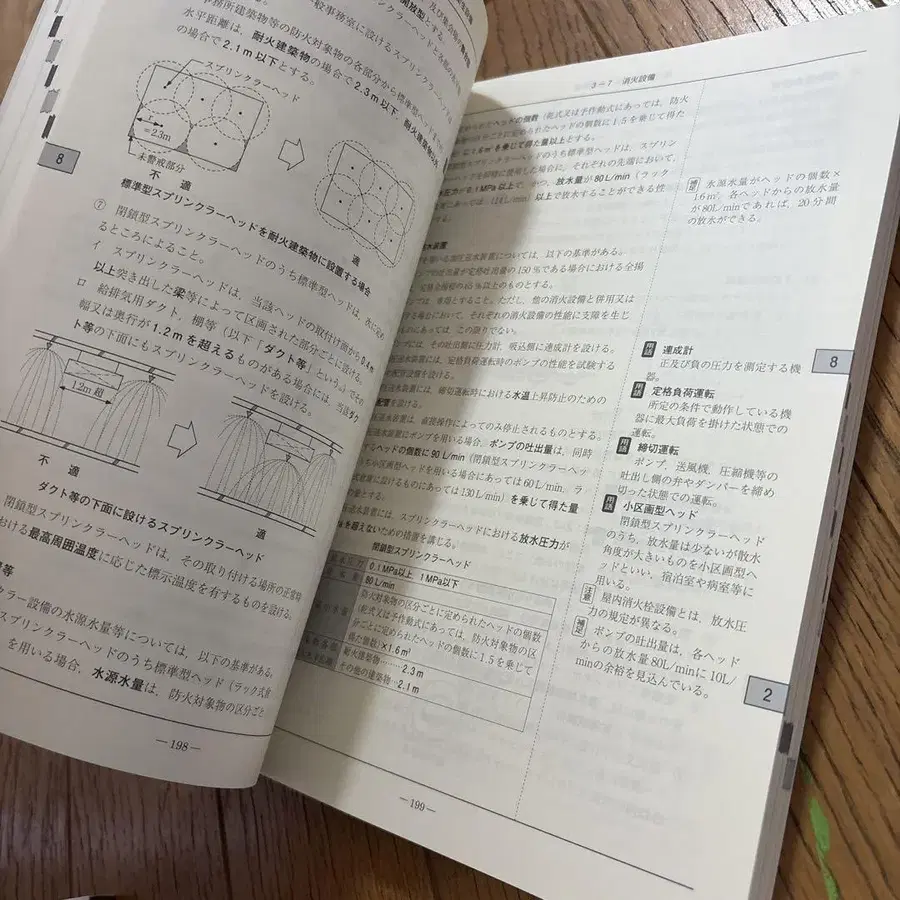 及び集会場の舞台部
開放型とする。
務所建築物等の防火対象物の各部分から標準型ヘッド
般事務室に設けるスプリンクラーヘッドと各部分の
水平距離は、耐火建築物の場合で2.3m以下、耐火建築物以外
の場合で2.1m以下とする。
スプリンクラーヘッド
r
=2.3m
未警戒部分
不 適
適
標準型スプリンクラーヘッドを耐火建築物に設置する場合
⑦ 閉鎖型スプリンクラーヘッドのうち標準型ヘッドは、次に定め
るところによること。
イ スプリンクラーヘッドは、当該ヘッドの取付け面から0.4m
以上突き出した梁等によって区画された部分ごとに設ける。
ロ 給排気用ダクト、棚等(以下「ダクト等」という。)でその
幅又は奥行が1.2mを超えるものがある場合には、当該ダク
ト等の下面にもスプリンクラーヘッドを設ける。
1.2m超
不 適
適
ダクト等の下面に設けるスプリンクラーヘッド
閉鎖型スプリンクラーヘッドは、その取り付ける場所の正常時
おける最高周囲温度に応じた標示温度を有するものを設ける。
等
クラー設備の水源水量等については、以下の基準がある。
スプリンクラーヘッドのうち標準型ヘッド(ラック式倉
を用いる場合、水源水量は、防火対象物の区分ごと
8
—198—
3-7 消火設備
ヘッドの個数(乾式又は予作動式にあっては、防火
分ごとに定められたヘッドの個数に1.5を乗じて得た
に1.6m³を乗じて得た量以上とする。
ラーヘッドのうち標準型ヘッドは、スプリン
を同時に使用した場合に、それぞれの先端において、
圧力が0.1MPa以上で、かつ、放水量が80L/min(ラック
あっては、114L/min)以上で放水することができる性
する。
水装置
を用いる加圧送水装置については、以下の基準がある。
プの吐出量が定格吐出量の150%である場合における全揚
定格全揚程の65%以上のものとする。
プは、専用とすること。ただし、他の消火設備と併用又は
する場合において、それぞれの消火設備の性能に支障を生じ
ものにあっては、この限りでない。
プには、その吐出側に圧力計、吸込側に連成計を設ける。
送水装置には、定格負荷運転時のポンプの性能を試験する
配管設備を設ける。
送水装置には、締切運転時における水温上昇防止のための
配管を設ける。
送水装置は、直接操作によってのみ停止されるものとする。
送水装置にポンプを用いる場合、ポンプの吐出量は、同時
するヘッドの個数に90L/min(閉鎖型スプリンクラーヘッ
ち小区画型ヘッドを用いる場合にあっては60L/min、ラ
式倉庫に設けるものにあっては130L/min)を乗じて得た量
の量とする。
送水装置には、スプリンクラーヘッドにおける放水圧力が
aを超えないための措置を講じる。
閉鎖型スプリンクラーヘッド
水圧力 0.1MPa以上 1MPa以下
80L/min
防火対象物の区分ごとに定められたヘッドの個数
(乾式又は予作動式にあっては、防火対象物の区
分ごとに定められたヘッドの個数に1.5を乗じて
得た個数)×1.6m³
耐火建築物……2.3m
その他の建築物…2.1m
補足 水源水量がヘッドの個数×
1.6m³、各ヘッドからの放水量
が80L/minであれば、20分間
の放水ができる。
用語 連成計
正及び負の圧力を測定する機
器。
用語 定格負荷運転
所定の条件で動作している機
器に最大負荷を掛けた状態での
運転。
用語 締切運転
ポンプ、送風機、圧縮機等の
吐出し側の弁やダンパーを締め
切った状態での運転。
用語 小区画型ヘッド
閉鎖型スプリンクラーヘッド
のうち、放水量は少ないが散水
角度が大きいものを小区画型ヘ
ッドといい、宿泊室や病室等に
用いる。
注意 屋内消火栓設備とは、放水圧
力の規定が異なる。
補足 ポンプの吐出量は、各ヘッド
からの放水量80L/minに10L/
minの余裕を見込んでいる。
8
2
—199—